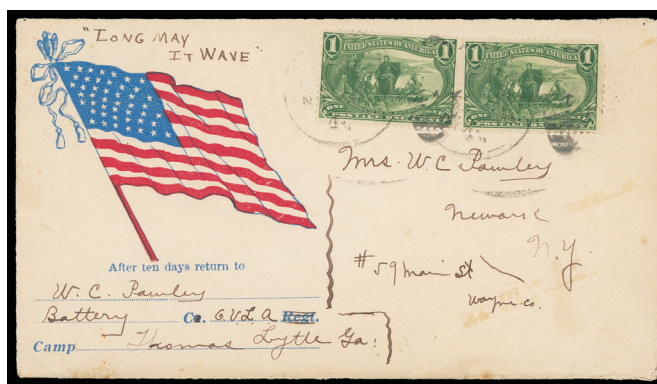 "LONG MAY
IT WAVE"
1 UNITED STATES OF AMERICA 1
ONE POSTAGE ONE CENT
1 UNITED STATES OF AMERICA 1
ONE POSTAGE ONE CENT
Mrs. W. C. Pawley
Newark
N.Y.
#59 Main St
Wayne Co.
After ten days return to
W. C. Pawley
Battery Co. G.V.L.A. Regt.
Camp Thomas Lytle Ga.